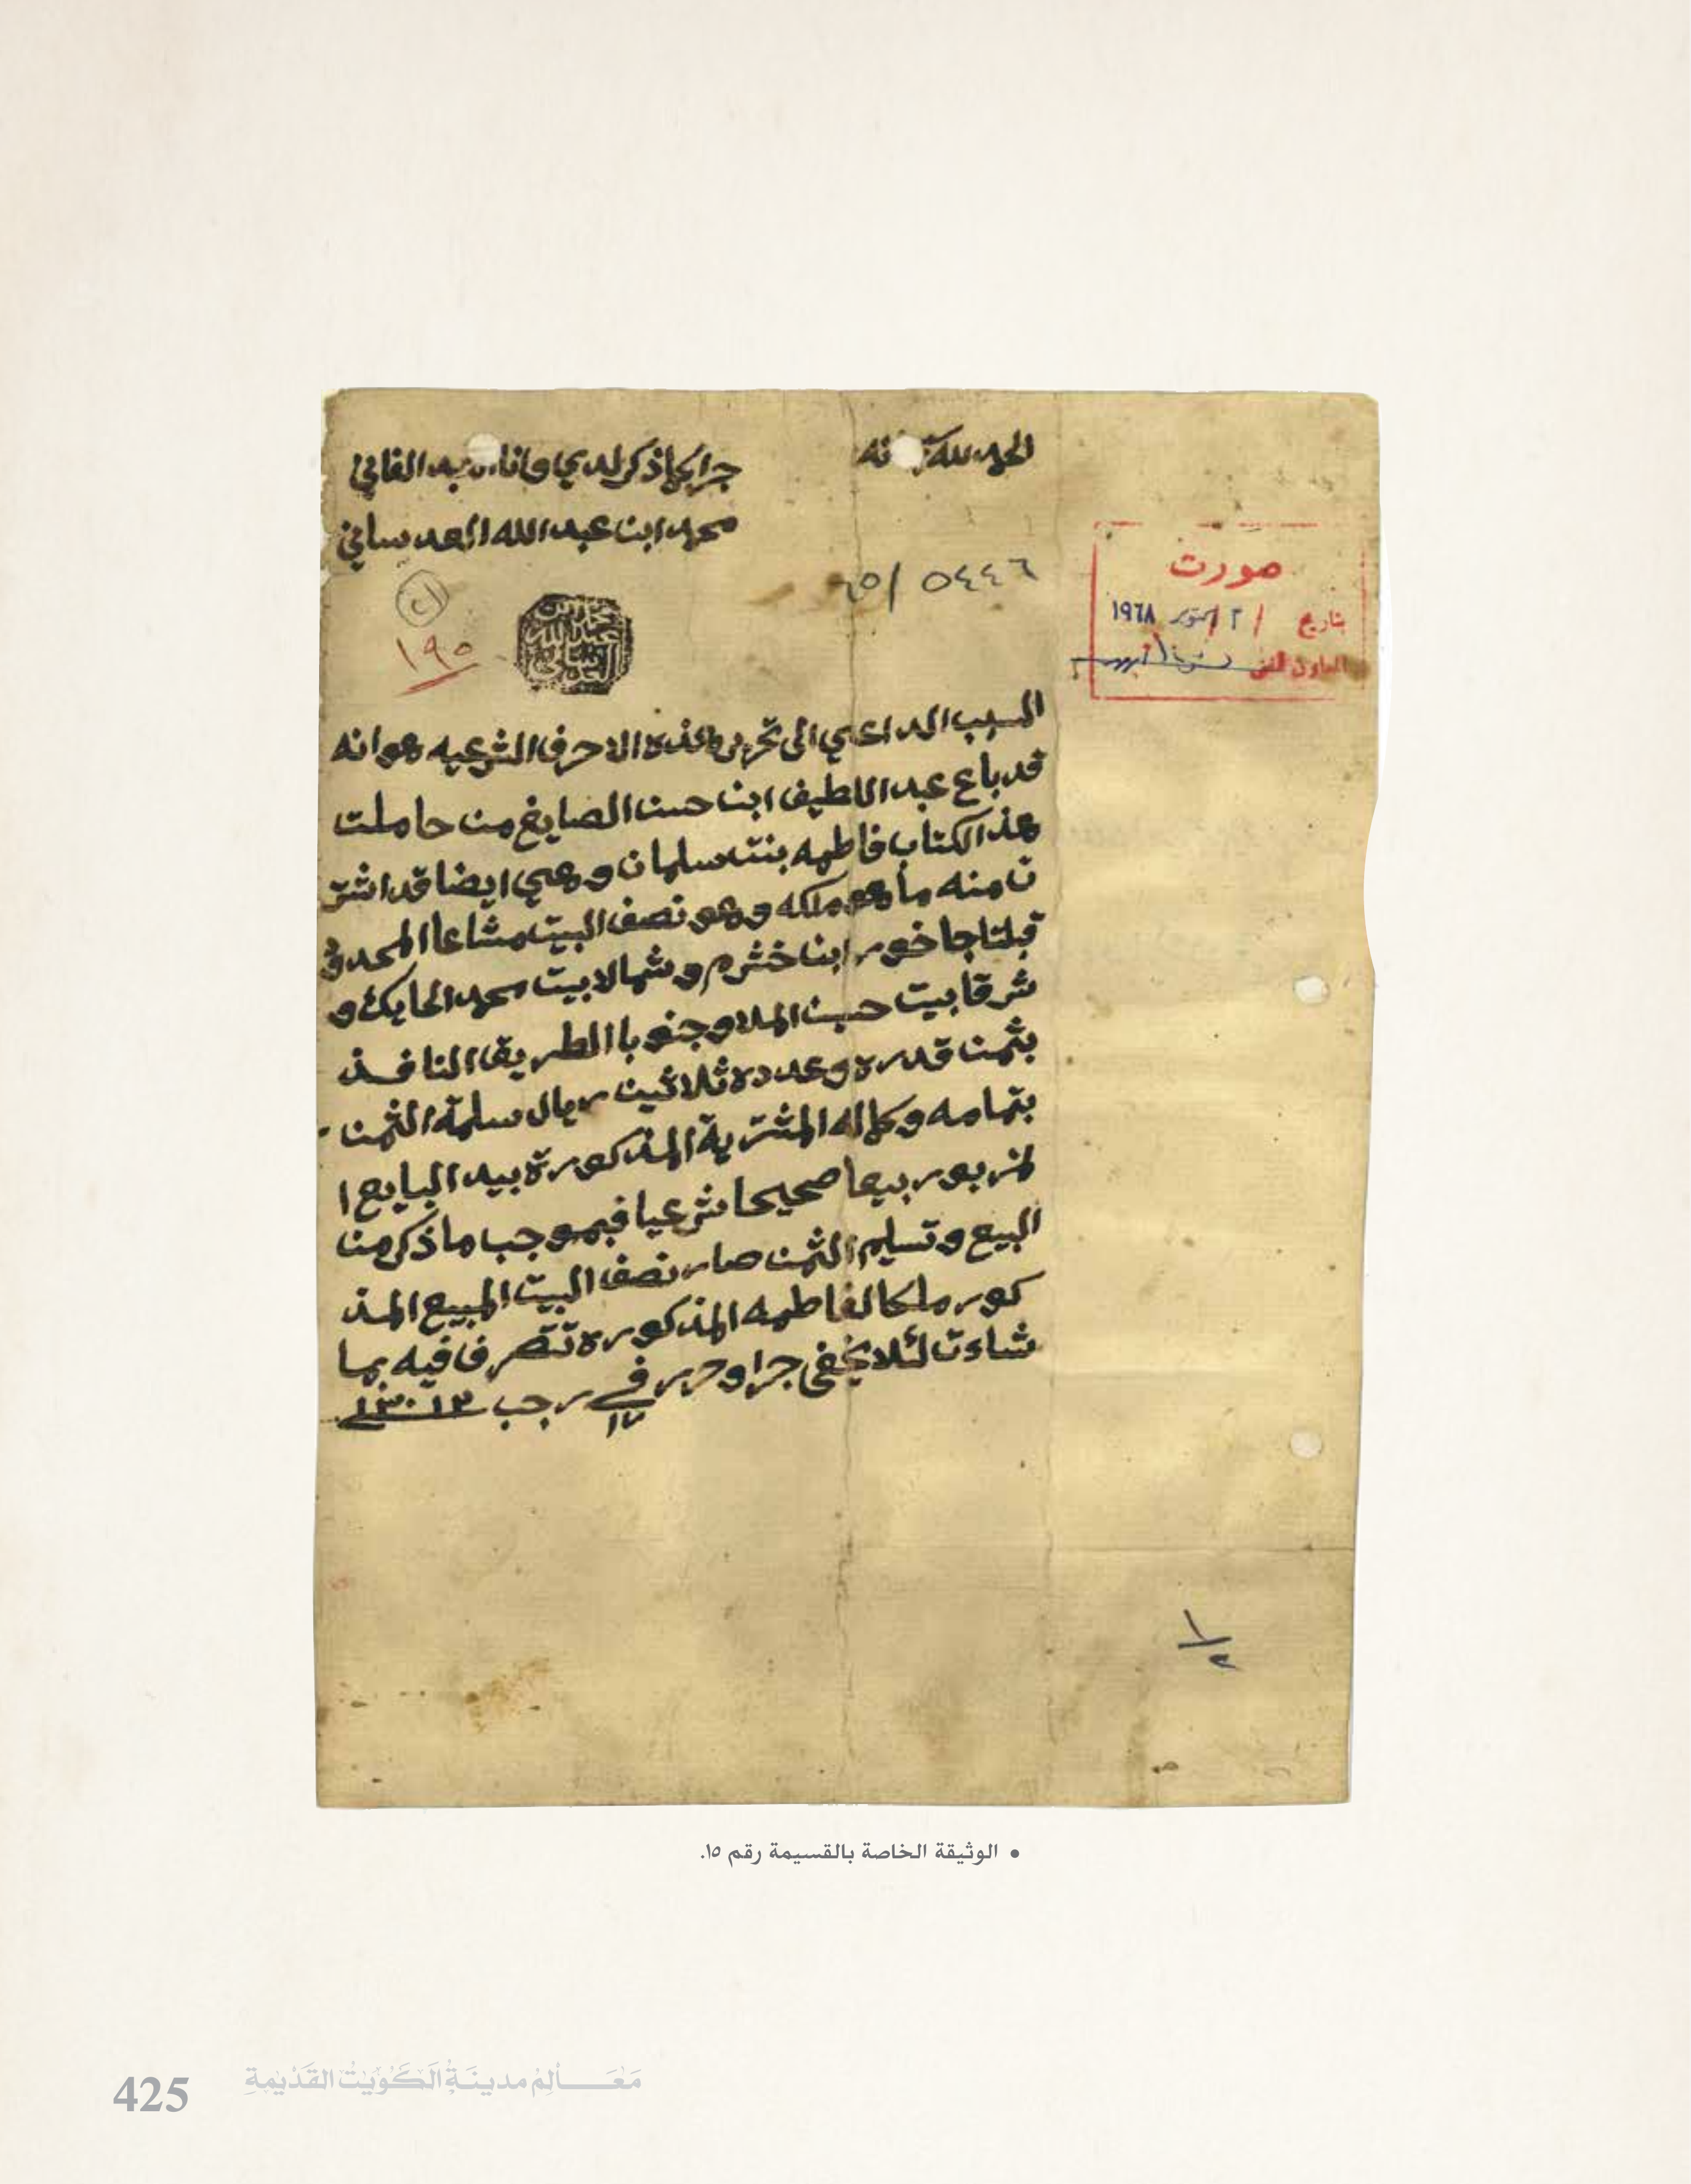 الحمد لله نه
جرا كما ذكر لدي وانا العبد الفاني
محمد ابن عبد الله العدساني
٥٤٤٦ /٦٥
٢١
١٩٥
صورت
بتاريخ / ٢ / اكتوبر ١٩٦٨
السبب الداعي الى تحرير هذه الاحرف الشرعيه هو انه
قد باع عبد اللطيف ابن حسن الصايغ من حاملت
هذ الكتاب فاطمه بنت سلمان وهي ايضا قد اشتر
ت منه ما هو ملكه وهو نصف البيت مشاعا المحدود
قبلتا جاخور ابن خثرم وشمالا بيت محمد الحايك و
شرقا بيت حسن الملا وجنوبا الطريق النافذ
بثمن قدره وعدده ثلاثين ريال سلمة الثمن
بتمامه وكماله المشترية المذكورة بيد البايع ا
لمزبور بيعا صحيحا شرعيا فبموجب ما ذكر من
البيع وتسليم الثمن صار نصف البيت المبيع المذ
كور ملكا لفاطمه المذكوره تتصرف فيه بما
شاءت لئلا يخفى جرا وحرر في ١٧ رجب ١٣٠١٣
١/٢
• الوثيقة الخاصة بالقسيمة رقم ١٥.
مَعَالِم مدينَة الكُوَيْت القَدْيمةِ
425